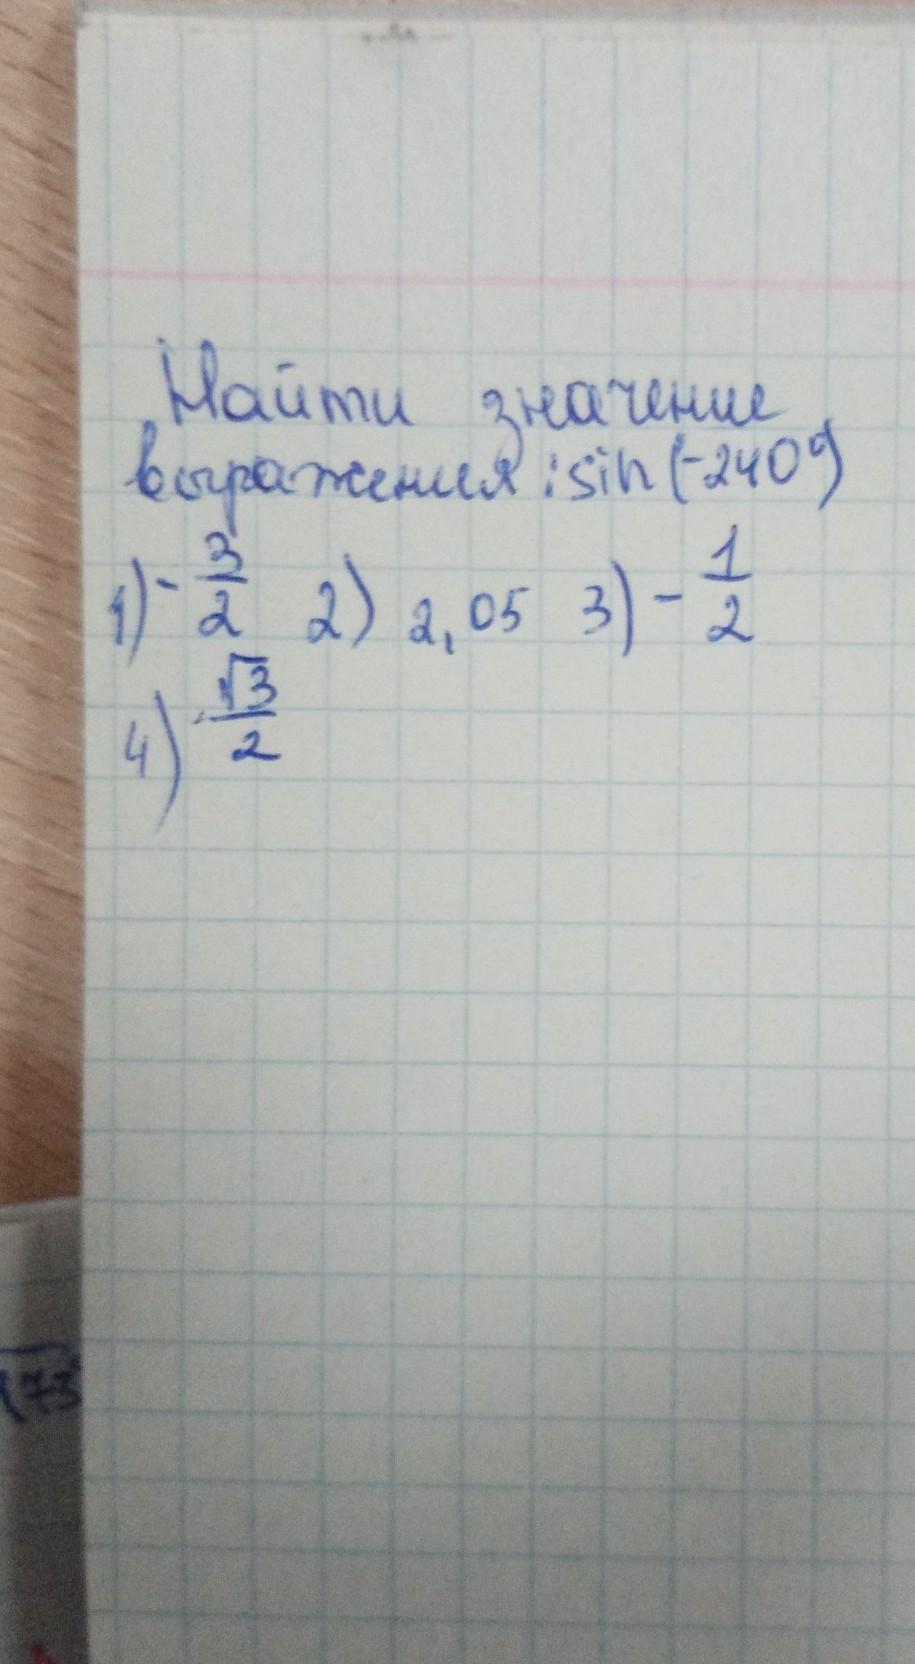 Найти значение
выражения: sin(-240°)
1) -3/2 2) 2,05 3) -1/2
4) √3/2
√73